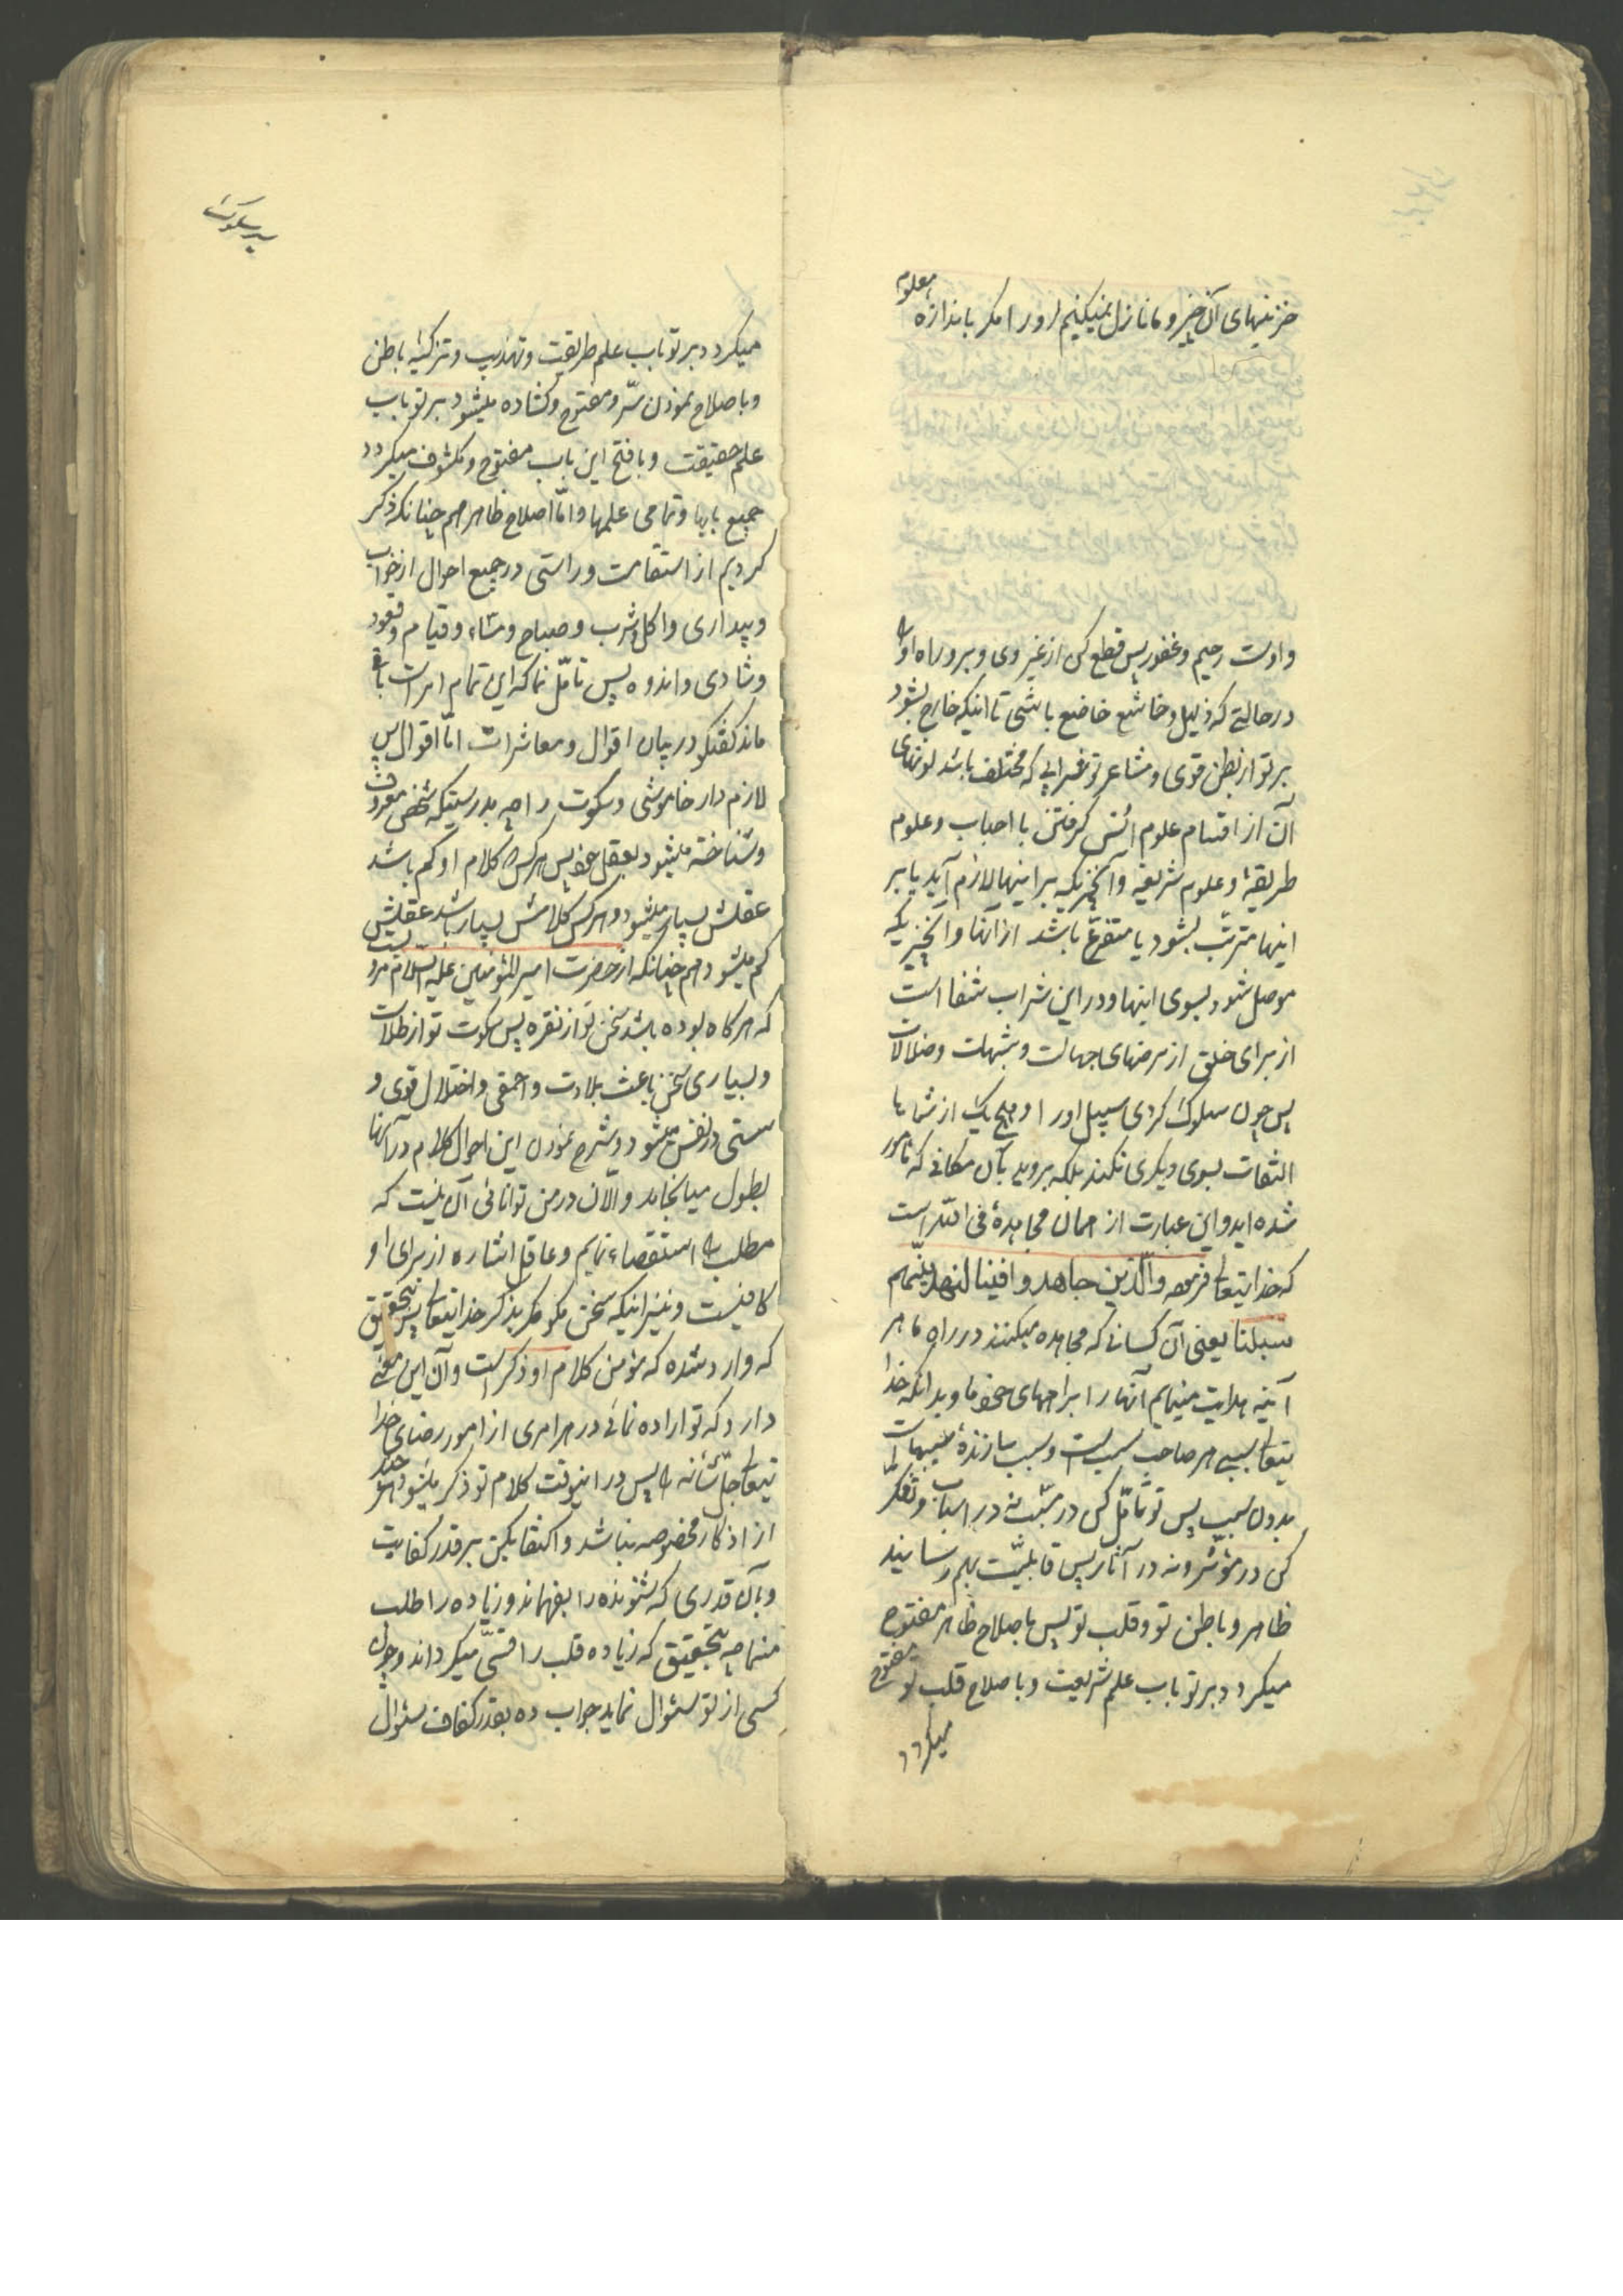 خزینهای آن چیز و ما نازل نمیکنیم او را مکر باندازه معلوم
و اوست رحیم و غفور پس قطع کن از غیر وی و برو راه او را
در حالتی که ذلیل و خاشع خاضع باشی تا اینکه خارج بشود
بر تو از بطن قوی و مشاعر تو شرابی که مختلف باشد لونهای
آن از اقسام علوم انس کرفتن با احباب و علوم
طریقة و علوم شریعة و آنچیزیکه بر اینها لازم آید یا بر
اینها مترتب بشود یا متفرع باشد از آنها و آنچیزیکه
موصل شود بسوی اینها و در این شراب شفا است
از برای خلق از مرضهای جهالت و شبهات و ضلالات
پس چون سلوک کردی سبیل او را و هیچ یک از شما ها
التفات بسوی دیکری نکند بلکه بروید بآن مکانی که مامور
شده اید و این عبارت از همان مجاهدهٔ فی الله است
که خدایتعالی فرموده والذین جاهدوا فینا لنهدینهم
سبلنا یعنی آن کسانی که مجاهده میکنند در راه ما هر
آینه هدایت مینمایم آنها را براههای خود و بدانکه خدا
یتعالی سبب هر صاحب سبب است و سبب سازندهٔ سببهاست
بدون سبب پس تو تأمل کن در مسبب نه در اسباب و تفکر
کن در مؤثر و نه در آثار پس قابلیت بهم رسانید
ظاهر و باطن تو و قلب تو پس باصلاح ظاهر مفتوح
میکردد بر تو باب علم شریعت و باصلاح قلب تو مفتوح
میکردد
سیر سلوک
میکردد بر تو باب علم طریقت و تهذیب و تزکیه باطن
و باصلاح نمودن سرّ و مفتوح و کشاده میشود بر تو باب
علم حقیقت و با فتح این باب مفتوح و مکشوف میکردد
جمیع بابها و تمامی علمها و اما اصلاح ظاهر هم چنانکه ذکر
کردیم از استقامت و راستی در جمیع احوال از خواب
و بیداری و اکل و شرب و صباح و مساء و قیام و قعود
و شادی و اندوه پس تأمل نما که این تمام امر است باقی
ماند کفتکو در بیان اقوال و معاشرات اما اقوال پس
لازم دار خاموشی و سکوت را چه بدرستیکه شخص معروف
و شناخته میشود بعقل خود پس هر کس کلام او کم باشد
عقلش بسیار میشود و هر کس کلامش بسیار باشد عقلش
کم میشود هم چنانکه از حضرت امیر المؤمنین علیه السلام مرویست
که هر کاه بوده باشد سخن تو از نقره پس سکوت تو از طلاست
و بسیاری سخن باعث بلادت و احمقی و اختلال قوی و
سستی در نفس میشود و شرح نمودن این احوال کلام در آنها
بطول میانجامد و الآن در من توانائی آن نیست که
مطلب را استقصاء نمایم و عاقل اشاره از برای او
کافیست و نیز اینکه سخن مکو مکر بذکر خدایتعالی پس بتحقیق
که وارد شده که مؤمن کلام او ذکر است و آن این معنی
دارد که تو اراده نمائی در هر امری از امور رضای خدا
یتعالی جل شأنه را پس در اینوقت کلام تو ذکر میشود هر چند
از اذکار مخصوصه نباشد و اکتفا بکن بر قدر کفایت
و بآن قدری که شنونده را بفهماند و زیاده را طلب
منما چه بتحقیق که زیاده قلب را قسی میکرداند و چون
کسی از تو سئوال نماید جواب ده بقدر کفاف سئوال